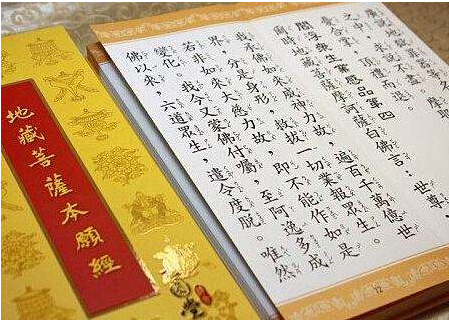 廣說地獄罪器等
之中，求說不盡。摩耶
憂合掌，頂禮而退。
閻浮眾生業感品第四
爾時地藏菩薩摩訶薩白佛言：世尊，
我承佛如來威神力故，遍百千萬億世
界，分是身形，救拔一切業報眾生。
若非如來大慈力故，即不能作如是
變化。我今又蒙佛付囑，至阿逸多成
佛以來，六道眾生，遣令度脫。唯然
72
地藏菩薩本願經